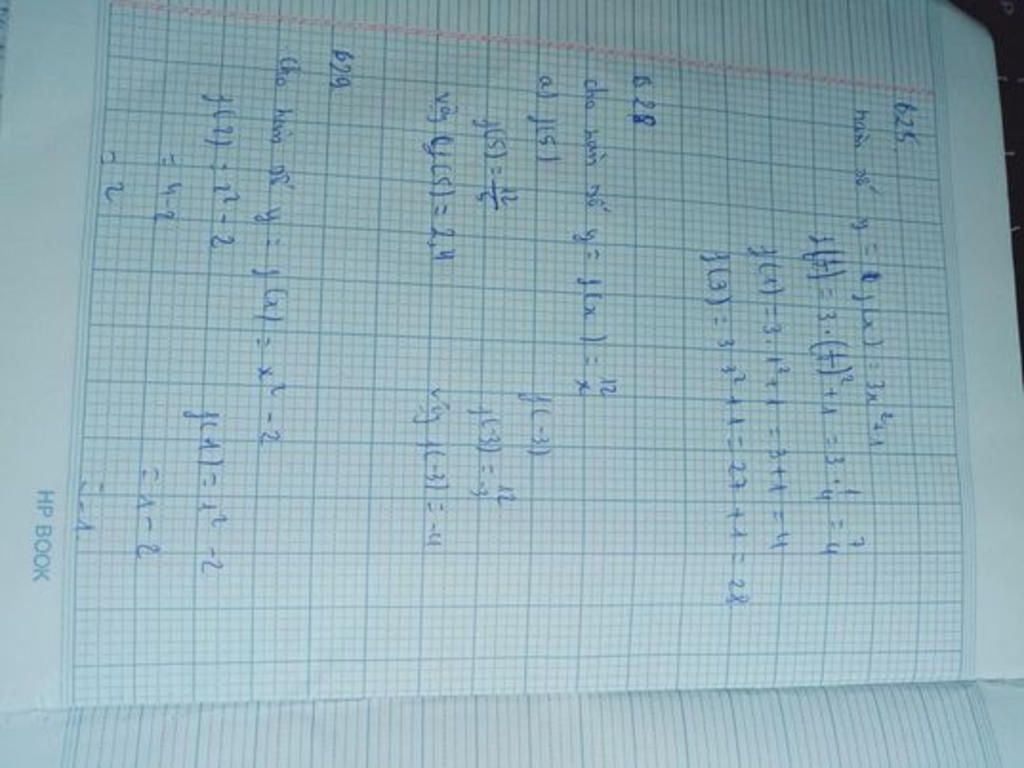 B25.
hàm số y = f(x) = 3x²+1
f(1/2) = 3.(1/2)²+1 = 3.1/4 = 7/4
f(1) = 3.1²+1 = 3+1 = 4
f(3) = 3.3²+1 = 27+1 = 28
B28
cho hàm số y = f(x) = 12/x
a) f(5) f(-3)
f(5) = 12/5 f(-3) = 12/-3
vậy f(5) = 2,4 vậy f(-3) = -4
B29
Cho hàm số y = f(x) = x² - 2
f(2) = 2² - 2 f(1) = 1² - 2
= 4-2 = 1-2
= 2 = -1
HP BOOK